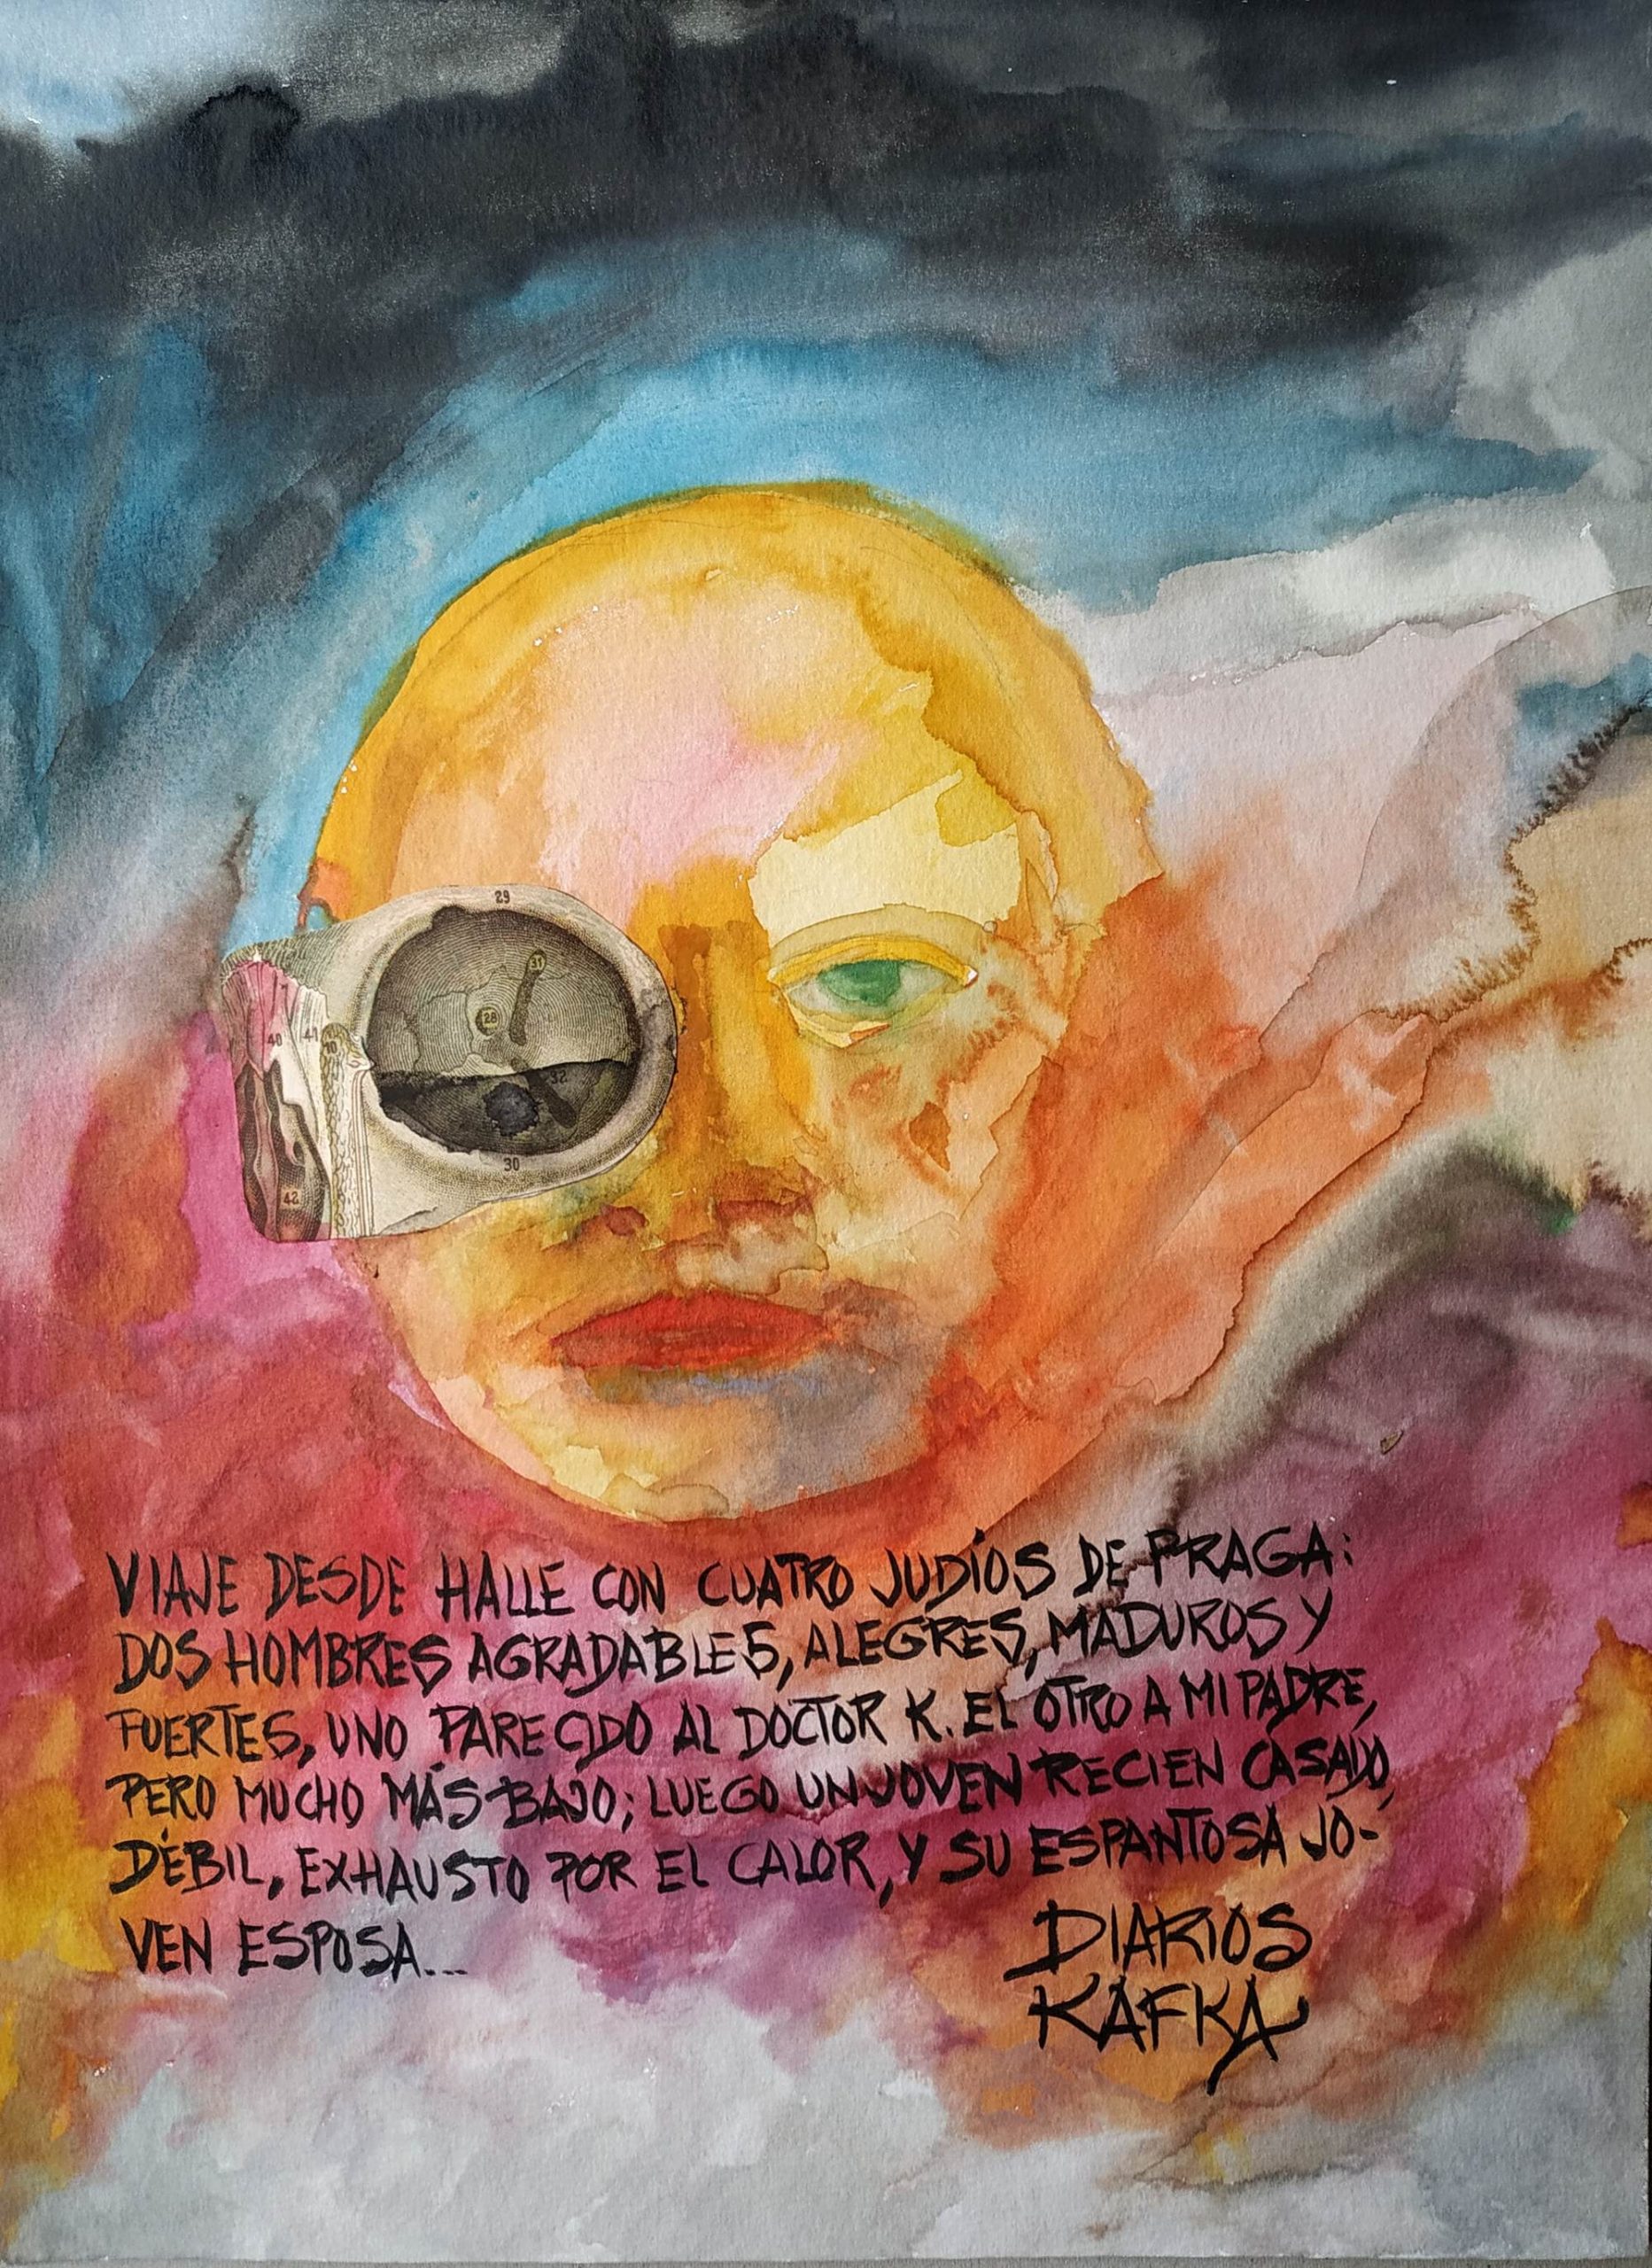 29
31
28
40
41
32
30
42
VIAJE DESDE HALLE CON CUATRO JUDÍOS DE PRAGA:
DOS HOMBRES AGRADABLES, ALEGRES, MADUROS Y
FUERTES, UNO PARECIDO AL DOCTOR K. EL OTRO A MI PADRE,
PERO MUCHO MÁS BAJO; LUEGO UN JOVEN RECIEN CASADO,
DÉBIL, EXHAUSTO POR EL CALOR, Y SU ESPANTOSA JO-
VEN ESPOSA...
DIARIOS
KAFKA